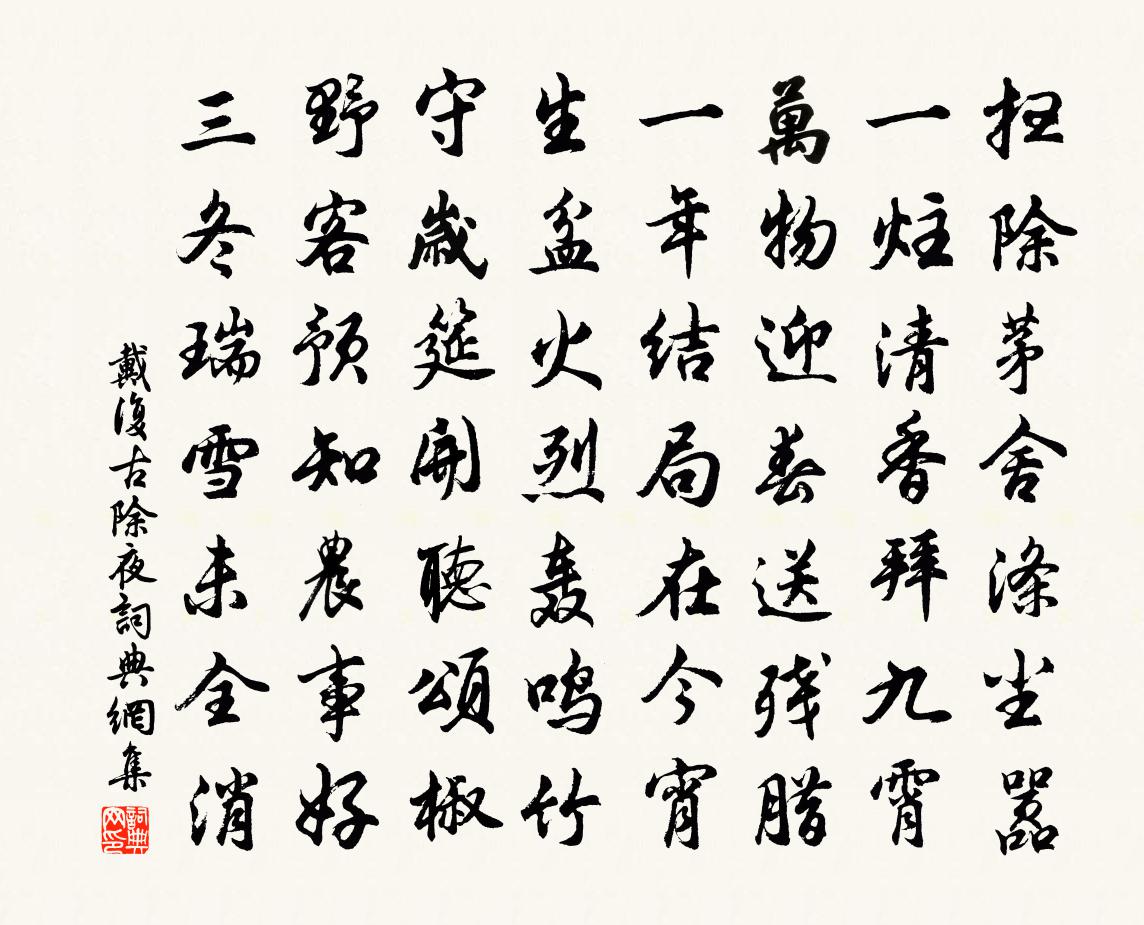 扫除茅舍涤尘嚣
一炷清香拜九霄
萬物迎春送残腊
一年结局在今宵
生盆火烈轰鸣竹
守歲筵開聴頌椒
野客预知農事好
三冬瑞雪未全消
戴復古除夜詞典網集
詞典网印